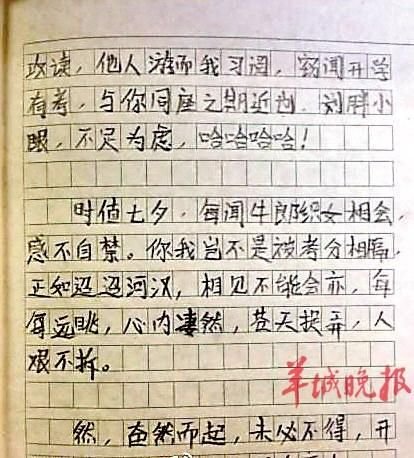 攻读，他人游而我习详，窃闻开学
有考，与你同座之期近也，刘胖小
眼，不足为虑，哈哈哈哈！
时值七夕，每闻牛郎织女相会，
感不自禁。你我岂不是被考分相隔，
正如迢迢河汉，相见不能会亦，每
每远眺，心内凄然，苍天捉弄，人
艰不拆。
羊城晚报
然，奋然而起，未必不得，开